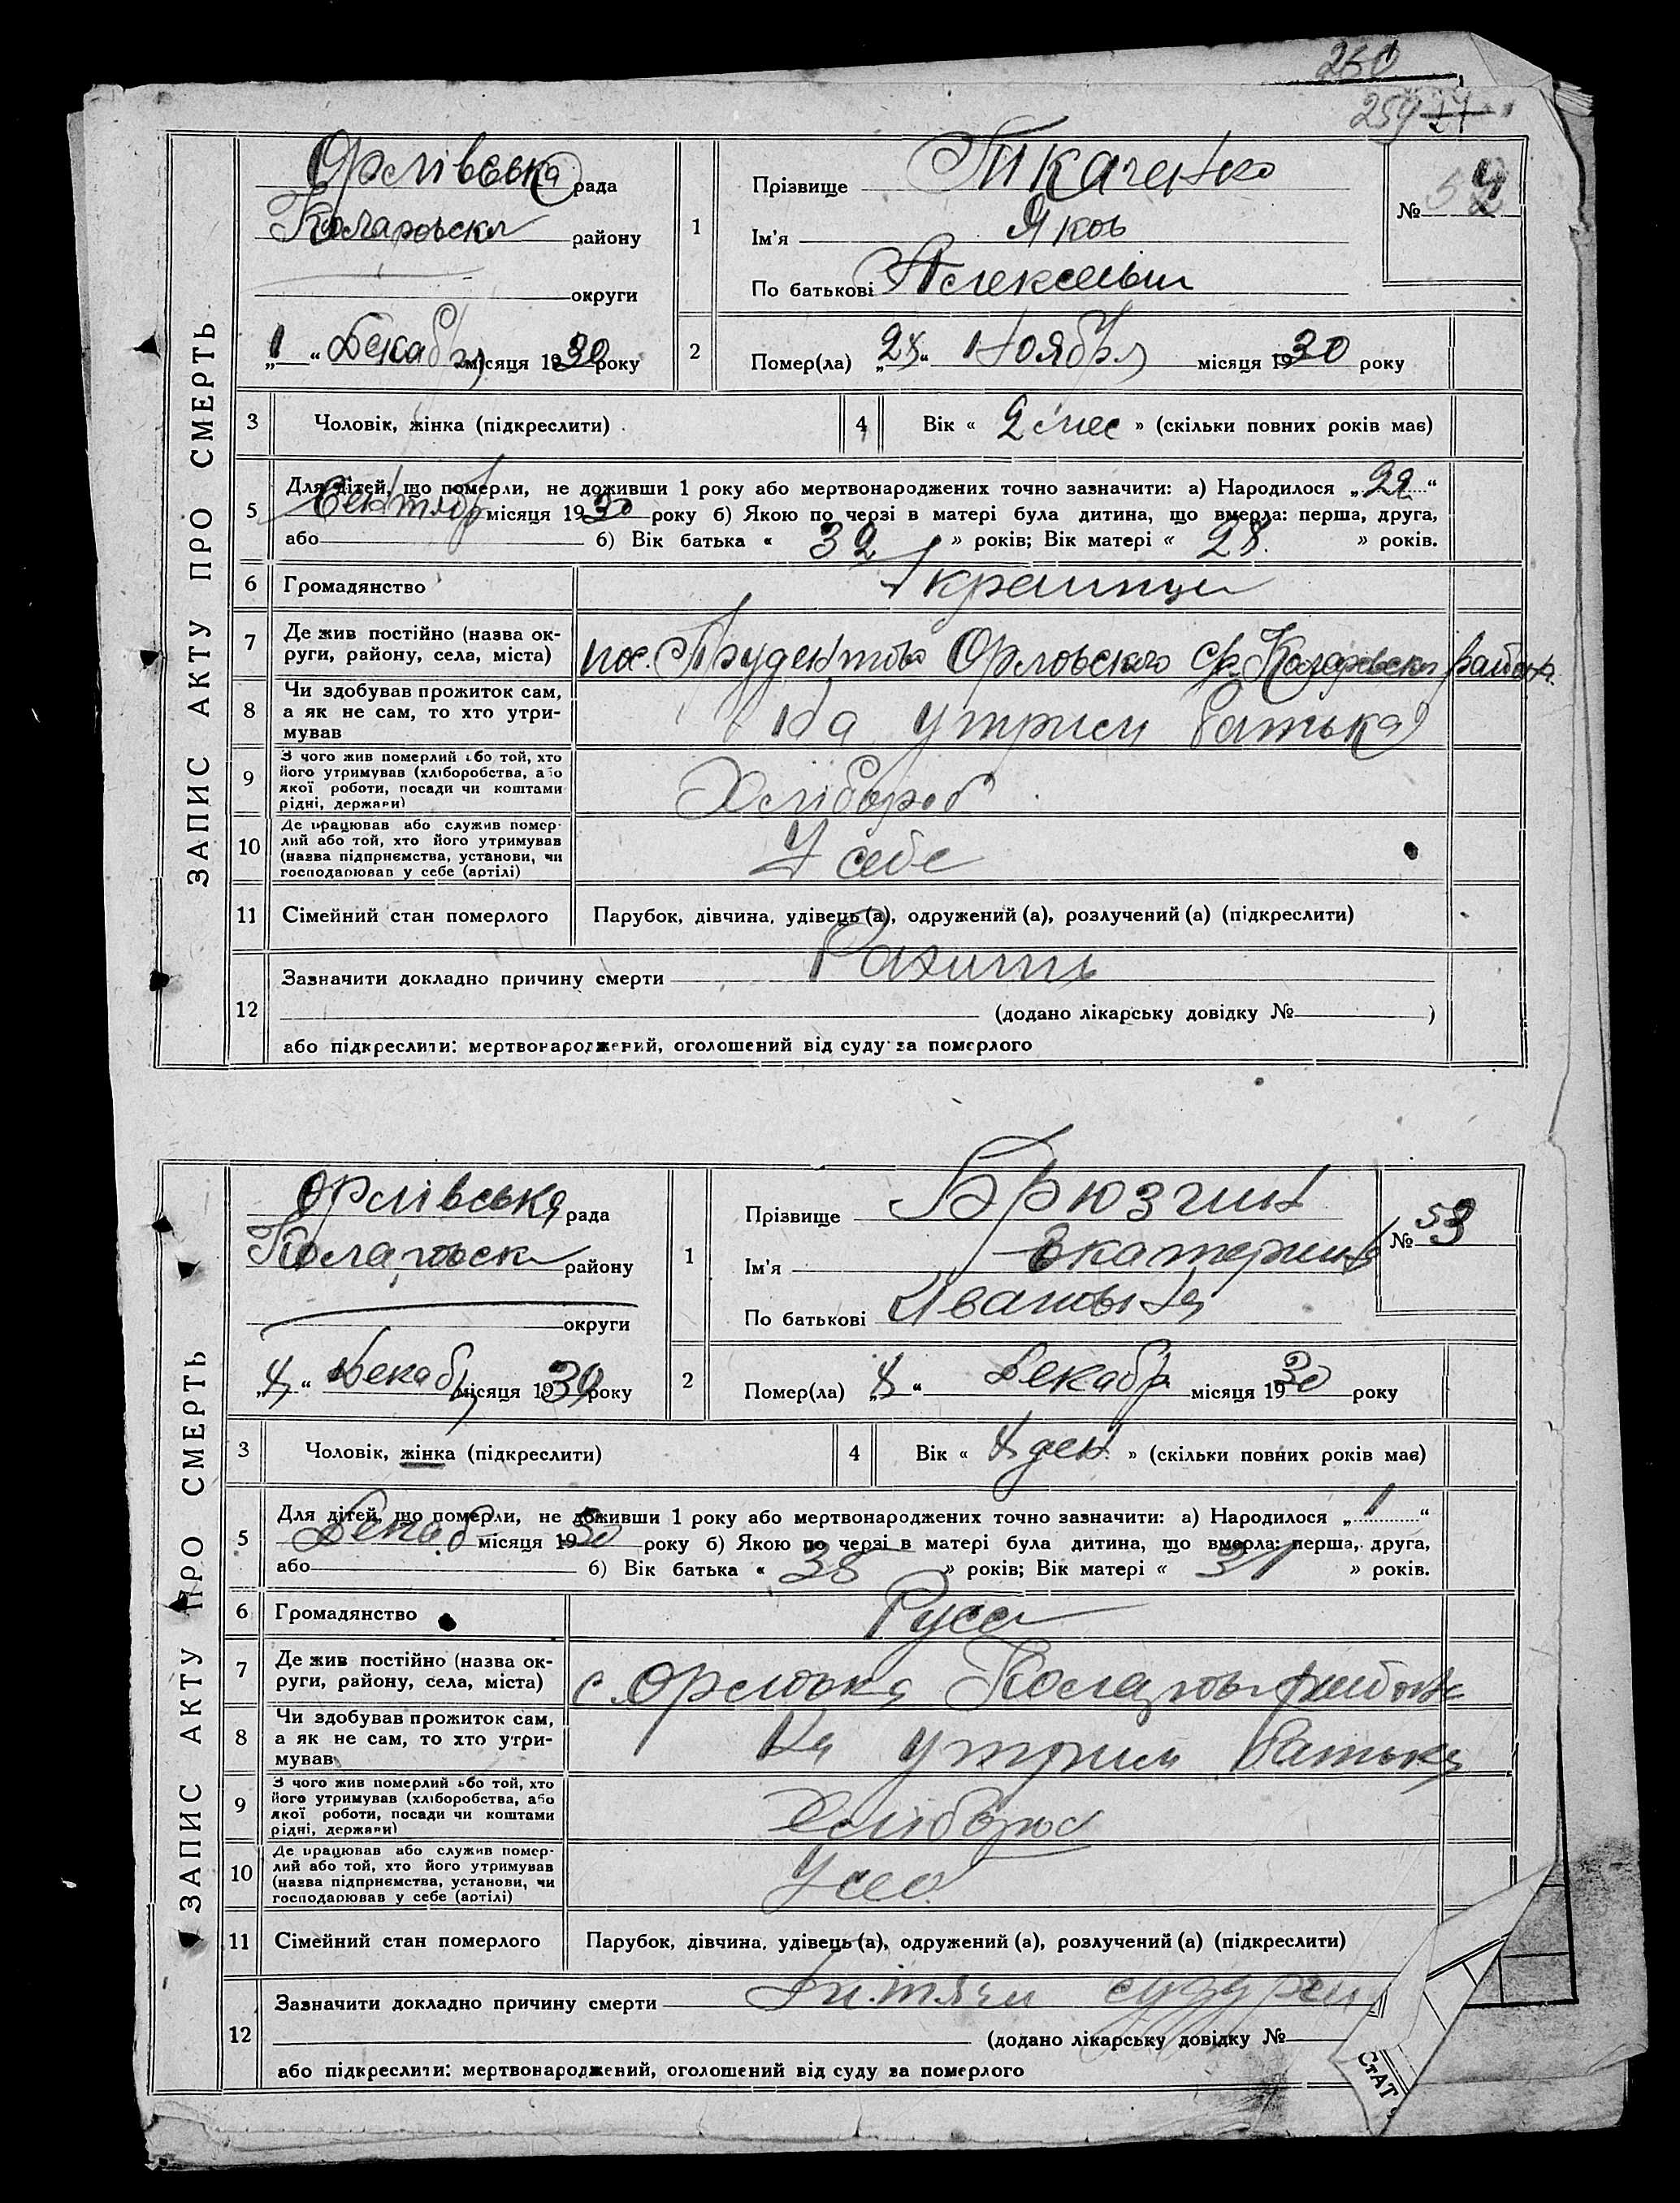 250
259
ЗАПИС АКТУ ПРО СМЕРТЬ
Орлівська рада
Коларовски району
округи
„1“ Декабря місяця 1930 року
1
Прізвище Ткаченко
Ім'я Яков
По батькові Алексеевич
№ 52
2
Помер(ла) „28“ Ноября місяця 1930 року
3 Чоловік, жінка (підкреслити)
4 Вік « 2 мес » (скільки повних років має)
5 Для дітей, що померли, не доживши 1 року або мертвонароджених точно зазначити: а) Народилося „22“
Сентябр місяця 1930 року б) Якою по черзі в матері була дитина, що вмерла: перша, друга,
або б) Вік батька « 32 » років; Вік матері « 28. » років.
6 Громадянство Украинци
7 Де жив постійно (назва ок-
руги, району, села, міста) пос. Трудентово Орловского с/р. Коларовски район
8 Чи здобував прожиток сам,
а як не сам, то хто утри-
мував
На утрим батька
9 З чого жив померлий або той, хто
його утримував (хліборобства, або
якої роботи, посади чи коштами
рідні, держави)
Хлібороб
10 Де працював або служив помер-
лий або той, хто його утримував
(назва підприємства, установи, чи
господарював у себе (артілі)
У себе
11 Сімейний стан померлого Парубок, дівчина, удівець (а), одружений (а), розлучений (а) (підкреслити)
12 Зазначити докладно причину смерти Рахит
(додано лікарську довідку № )
або підкреслити: мертвонароджений, оголошений від суду за померлого
ЗАПИС АКТУ ПРО СМЕРТЬ
Орлівська рада
Коларовск району
округи
„4“ Декабря місяця 1930 року
1
Прізвище Брюзгин
Ім'я Екатерина
По батькові Ивановна
№ 53
2
Помер(ла) „4“ Декабр місяця 1930 року
3 Чоловік, жінка (підкреслити)
4 Вік « 4 ден. » (скільки повних років має)
5 Для дітей, що померли, не доживши 1 року або мертвонароджених точно зазначити: а) Народилося „1“
Декаб місяця 1930 року б) Якою по черзі в матері була дитина, що вмерла: перша, друга,
або б) Вік батька « 38 » років; Вік матері « 31 » років.
6 Громадянство Русс
7 Де жив постійно (назва ок-
руги, району, села, міста) с. Орловка Коларов район
8 Чи здобував прожиток сам,
а як не сам, то хто утри-
мував
На утрим батька
9 З чого жив померлий або той, хто
його утримував (хліборобства, або
якої роботи, посади чи коштами
рідні, держави)
Хлібороб
10 Де працював або служив помер-
лий або той, хто його утримував
(назва підприємства, установи, чи
господарював у себе (артілі)
У себ
11 Сімейний стан померлого Парубок, дівчина, удівець (а), одружений (а), розлучений (а) (підкреслити)
12 Зазначити докладно причину смерти
(додано лікарську довідку №
або підкреслити: мертвонароджений, оголошений від суду за померлого
СтАТ